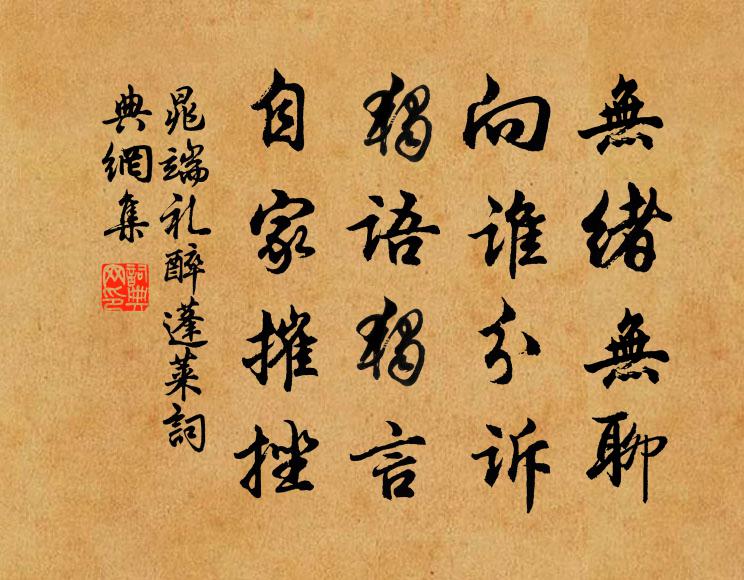 無緒無聊
向誰分诉
獨語獨言
自家摧挫
晁端礼醉蓬莱詞
典網集
詞典
网印